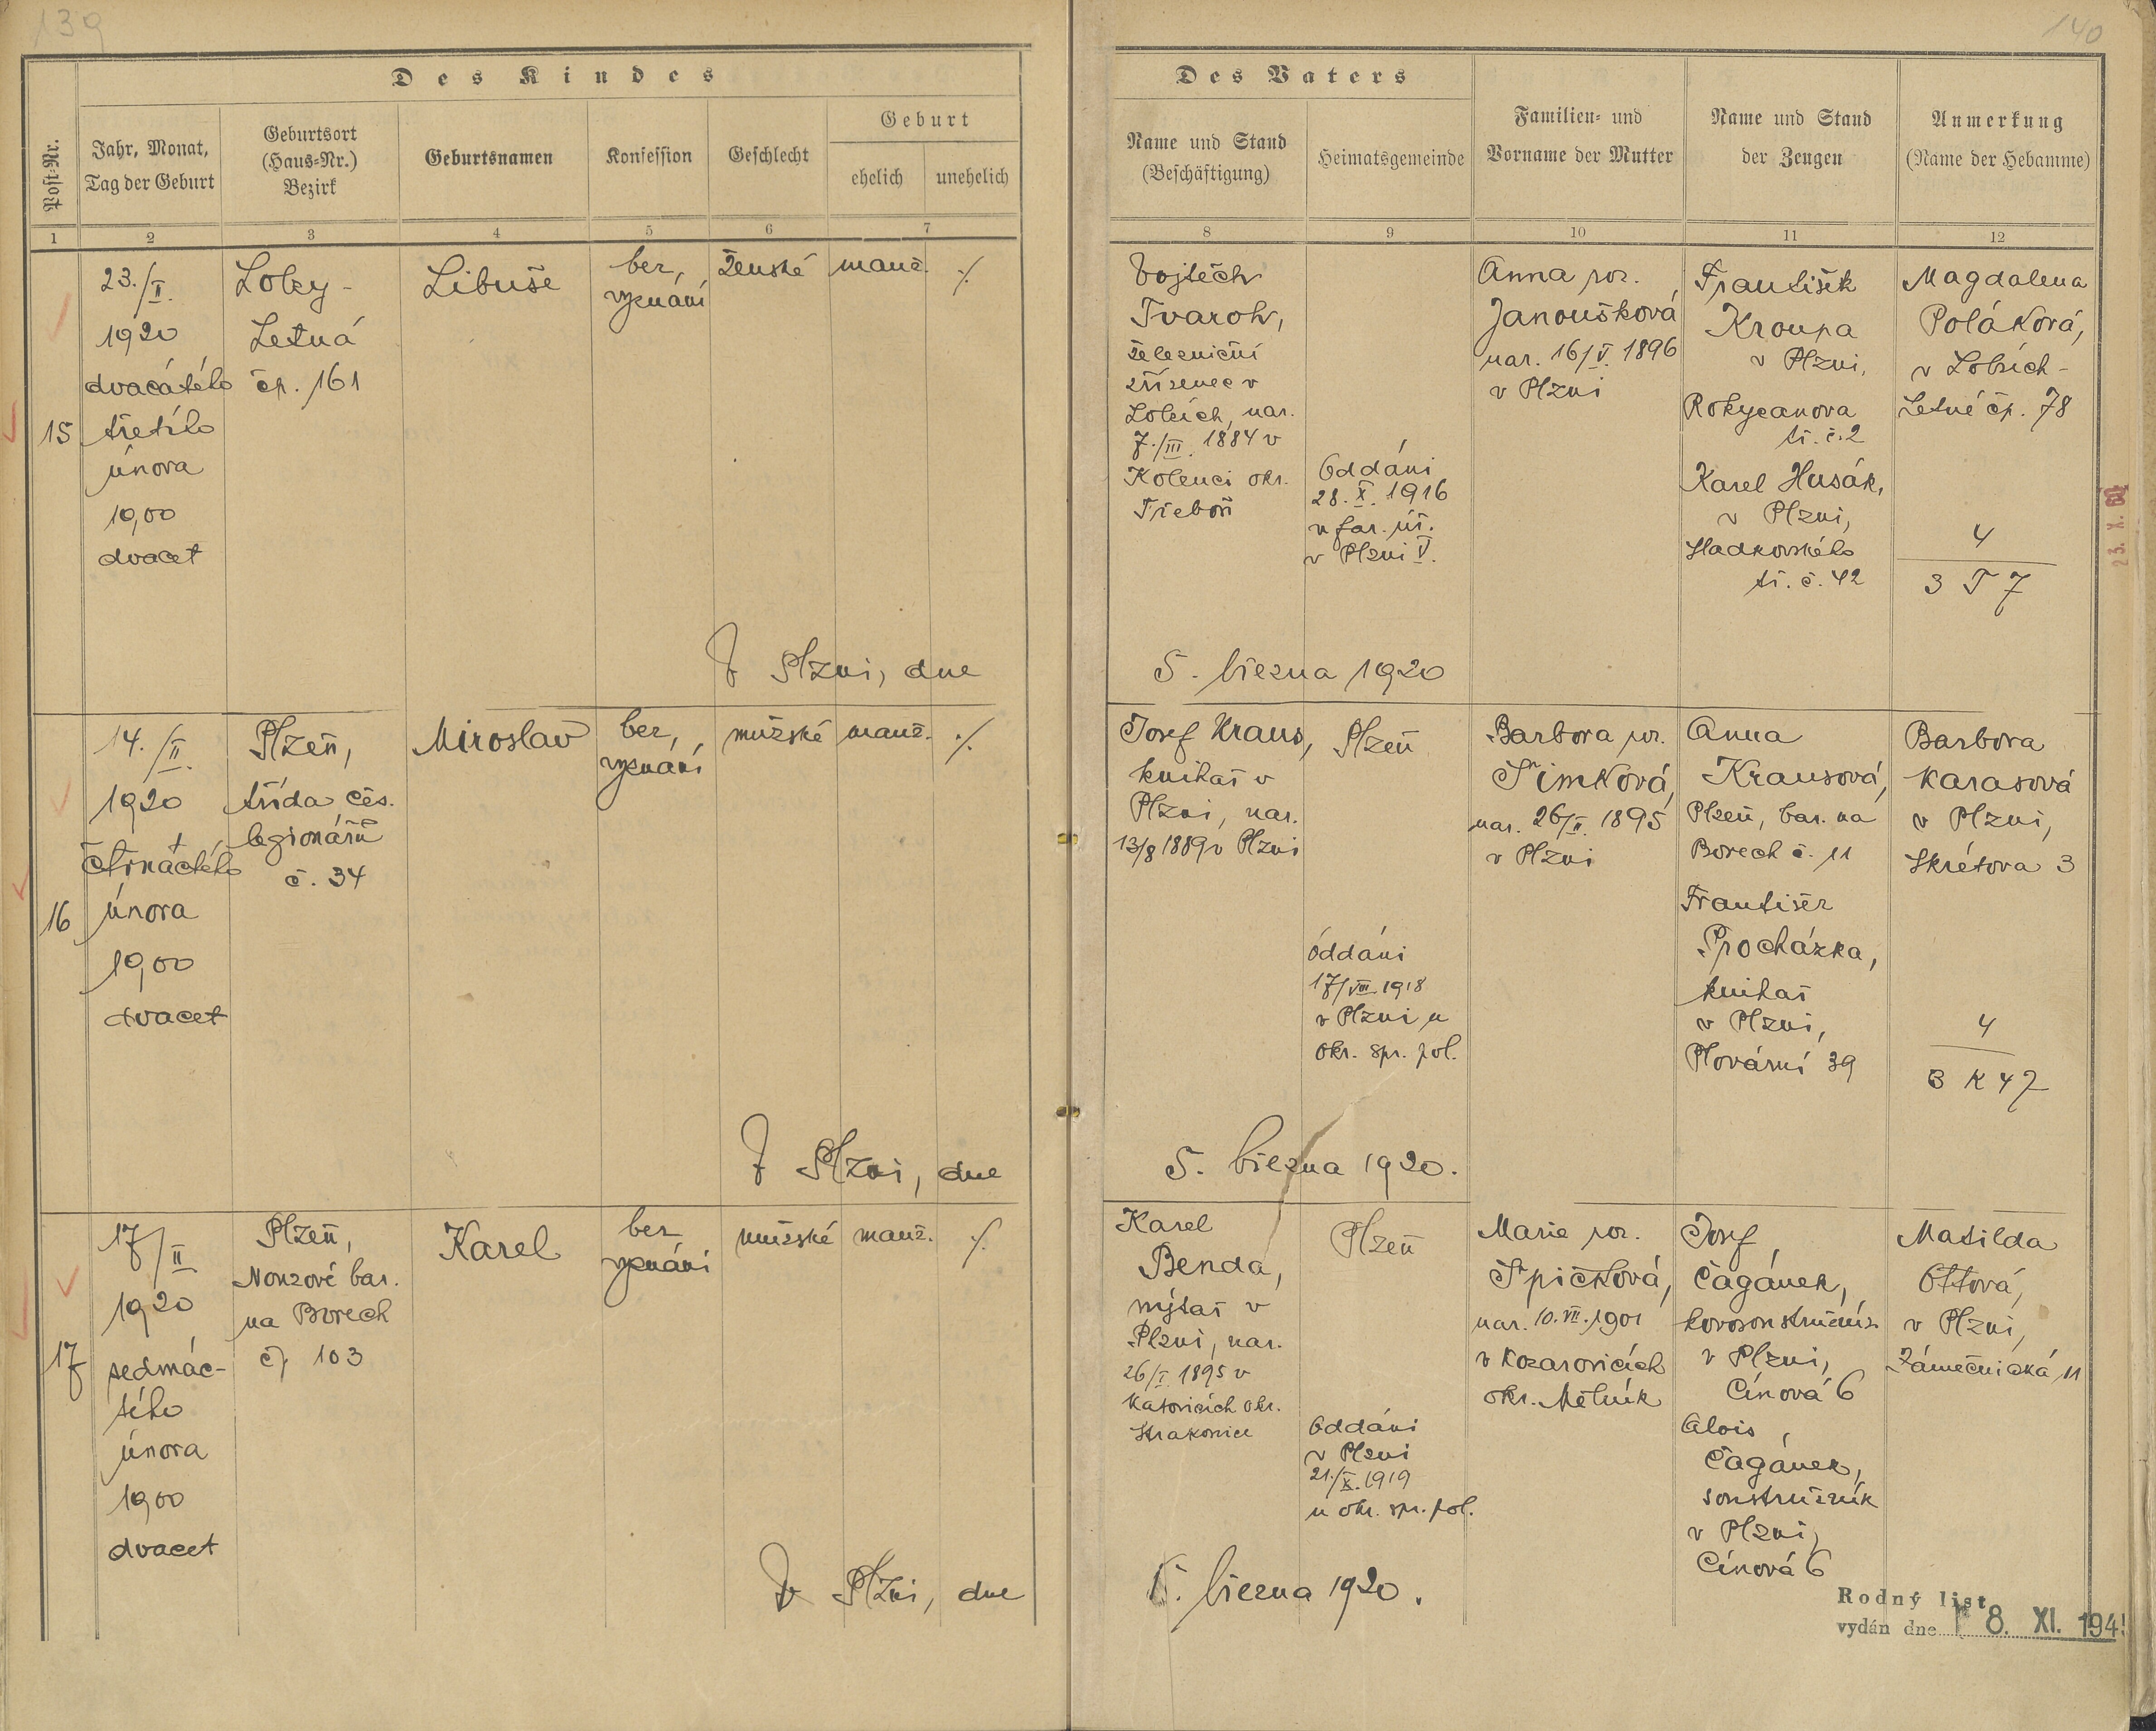 139
140
Des Kindes
Post=Nr.
Jahr, Monat,
Tag der Geburt
Geburtsort
(Haus=Nr.)
Bezirk
Geburtsnamen
Konfession
Geschlecht
Geburt
ehelich
unehelich
1 2 3 4 5 6 7
Des Vaters
Name und Stand
(Beschäftigung)
Heimatsgemeinde
Familien= und
Vorname der Mutter
Name und Stand
der Zeugen
Anmerkung
(Name der Hebamme)
8 9 10 11 12
15
23./II.
1920
dvacátého
třetího
února
19,00
dvacet
Lobzy -
Letná
čp. 161
Libuše
bez,
vyznání
ženské
manž.
./.
Vojtěch
Tvaroh,
železniční
zřízenec v
Lobzích, nar.
7./III. 1884 v
Kolenci okr.
Třeboň
Oddáni
28. X. 1916
v far. úř.
v Plzni V.
Anna roz.
Janoušková
nar. 16/V. 1896
v Plzni
František
Kroupa
v Plzni,
Rokycanova
tř. č. 2
Karel Husák,
v Plzni,
Sladkovského
tř. č. 42
Magdalena
Poláková,
v Lobzích -
Letné čp. 78
4
3 T 7
23. X.
V Plzni, dne
5. března 1920
16
14./II.
1920
čtrnáctého
února
19,00
dvacet
Plzeň,
třída čes.
legionářů
č. 34
Miroslav
bez,
vyznání
mužské
manž.
./.
Josef Kraus,
knihař v
Plzni, nar.
13/8 1889 v Plzni
Plzeň
oddáni
17/VIII 1918
v Plzni u
okr. spr. pol.
Barbora roz.
Šimková,
nar. 26/II. 1895
v Plzni
Anna
Krausová,
Plzeň, bar. na
Borech č. 11
František
Procházka,
knihař
v Plzni,
Plovární 39
Barbora
Karasová
v Plzni,
Skrétova 3
4
3 K 47
V Plzni, dne
5. března 1920.
17
17/II
1920
sedmác-
tého
února
1900
dvacet
Plzeň,
Nouzové bar.
na Borech
čp 103
Karel
bez
vyznání
mužské
manž.
./.
Karel
Benda,
mýtař v
Plzni, nar.
26/I 1895 v
Katovicích okr.
Strakonice
Plzeň
Oddáni
v Plzni
21./X. 1919
u okr. spr. pol.
Marie roz.
Špičková,
nar. 10. VII. 1901
v Kozarovicích
okr. Mělník
Josef
Čagánek,
kovosoustružník
v Plzni,
Cínová 6
Alois
Čagánek,
soustružník
v Plzni,
Cínová 6
Matilda
Ottová,
v Plzni,
Zámečnická 11
V Plzni, dne
5. března 1920.
Rodný list
vydán dne 8. XI. 194